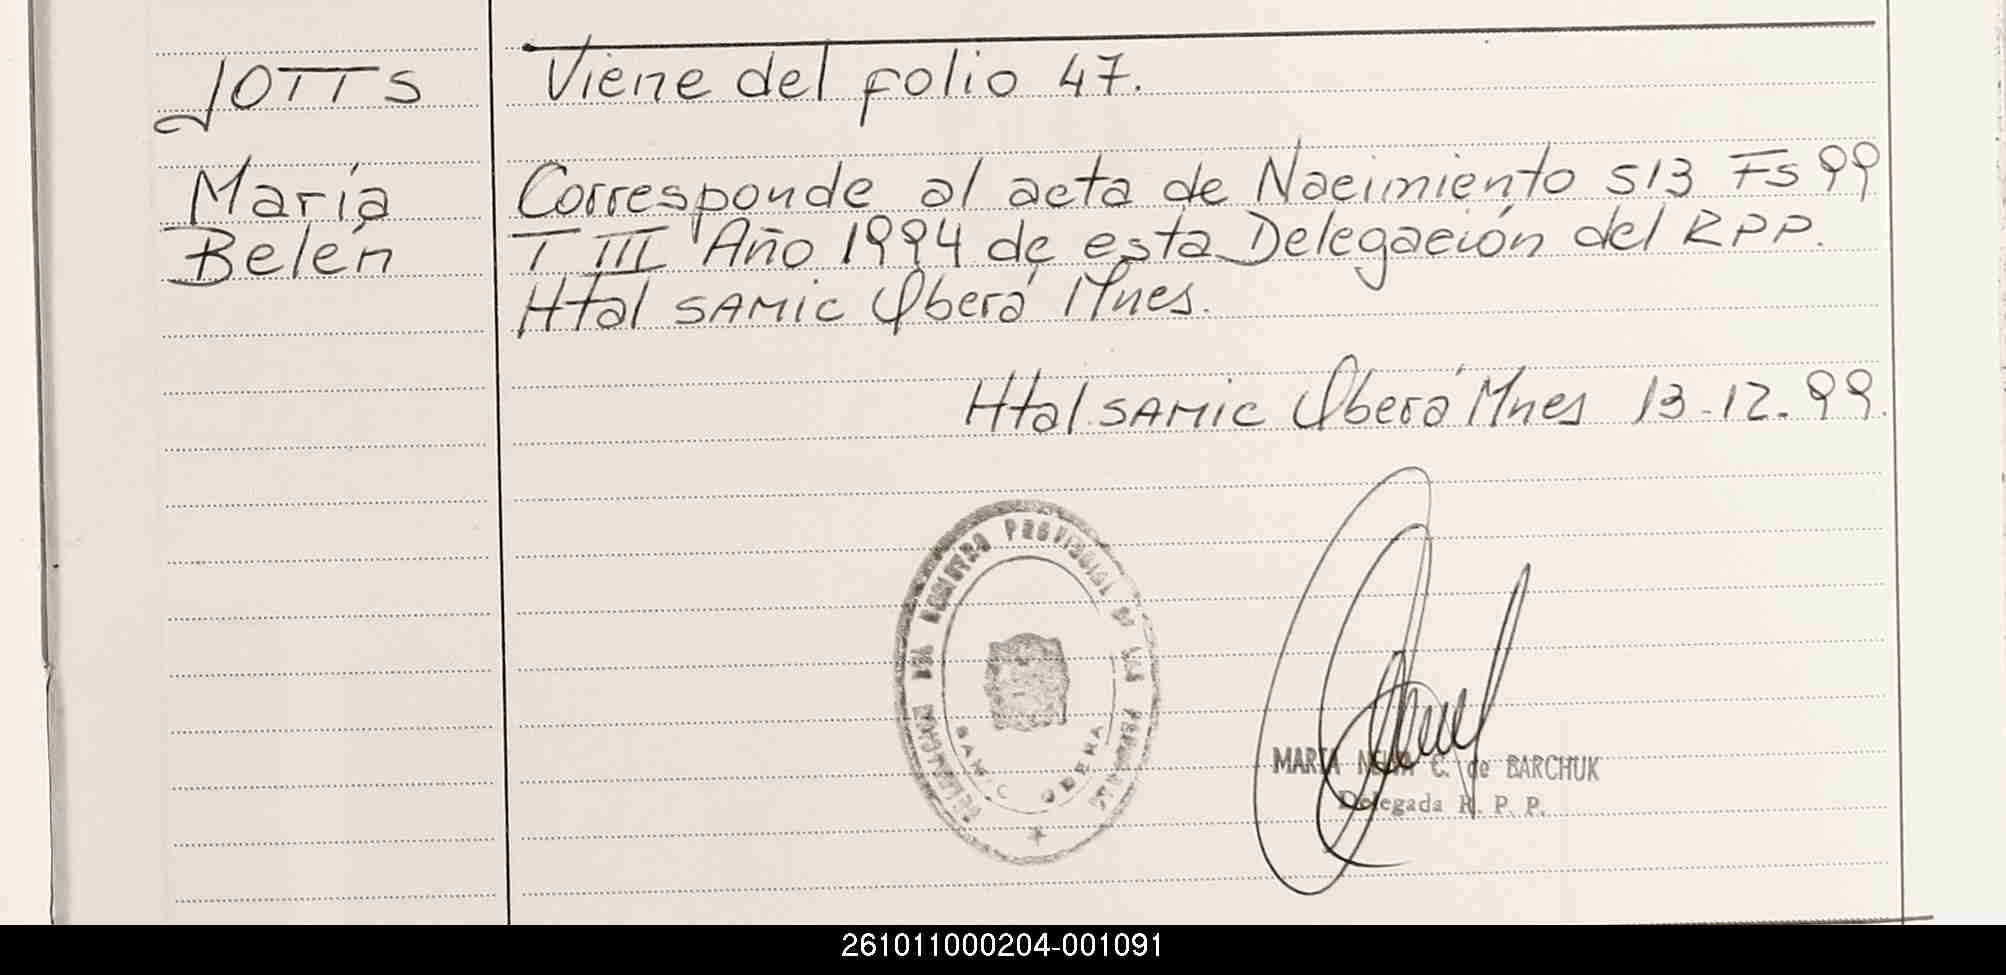 JOTTS
María
Belén
Viene del folio 47.
Corresponde al acta de Nacimiento 513 Fs 99
T III Año 1994 de esta Delegación del RPP.
Htal SAMIC Oberá Mnes.
Htal SAMIC Oberá Mnes 13-12-99.
DELEGACION DEL REGISTRO PROVINCIAL DE LAS PERSONAS
SAMIC OBERA
MARIA C. de BARCHUK
Delegada R. P. P.
261011000204-001091